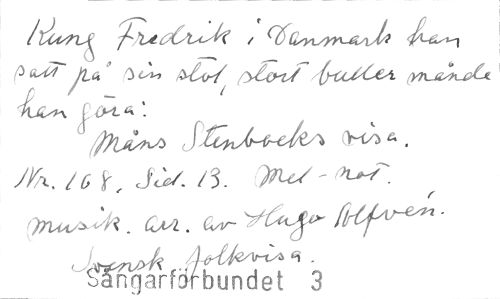 Kung Fredrik i Danmark han
satt på sin stol, stort buller månde
han göra:
Måns Stenbocks visa.
Nr. 168, Sid. 13. Mel-not.
musik. arr. av Hugo Alfvén.
Svensk folkvisa.
Sångarförbundet 3